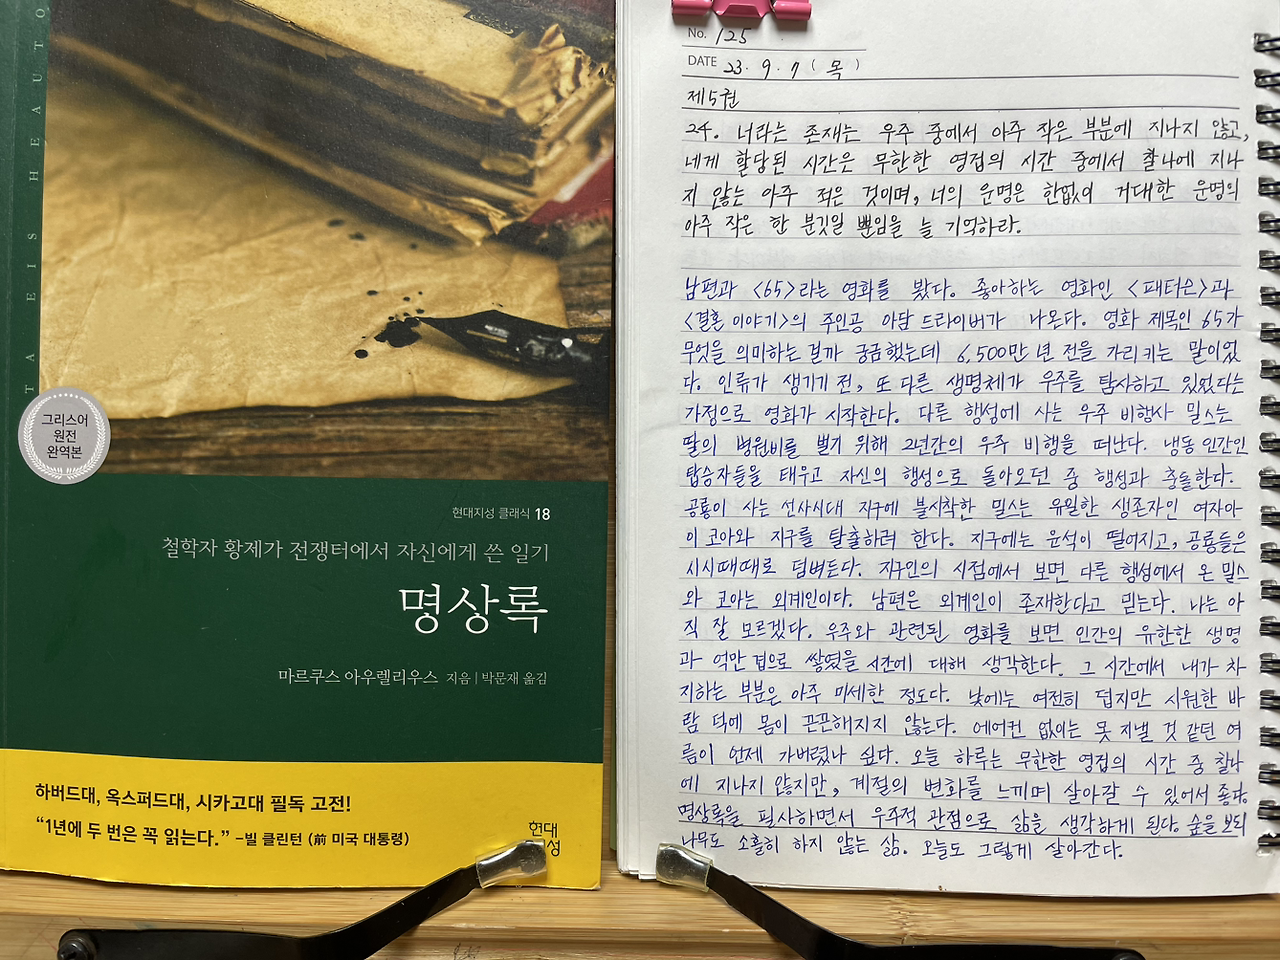 TA EIS HEAUTO
그리스어
원전
완역본
현대지성 클래식 18
철학자 황제가 전쟁터에서 자신에게 쓴 일기
명상록
마르쿠스 아우렐리우스 지음 | 박문재 옮김
하버드대, 옥스퍼드대, 시카고대 필독 고전!
“1년에 두 번은 꼭 읽는다.” –빌 클린턴 (前 미국 대통령)
현대
지성
No. 125
DATE 23. 9. 7 (목)
제5권
24. 너라는 존재는 우주 중에서 아주 작은 부분에 지나지 않고,
네게 할당된 시간은 무한한 영겁의 시간 중에서 찰나에 지나
지 않는 아주 적은 것이며, 너의 운명은 한없이 거대한 운명의
아주 작은 한 부분일 뿐임을 늘 기억하라.
남편과 <65>라는 영화를 봤다. 좋아하는 영화인 <패터슨>과
<결혼 이야기>의 주인공 아담 드라이버가 나온다. 영화 제목인 65가
무엇을 의미하는 걸까 궁금했는데 6,500만 년 전을 가리키는 말이었
다. 인류가 생기기 전, 또 다른 생명체가 우주를 탐사하고 있었다는
가정으로 영화가 시작한다. 다른 행성에 사는 우주 비행사 밀스는
딸의 병원비를 벌기 위해 2년간의 우주 비행을 떠난다. 냉동 인간인
탑승자들을 태우고 자신의 행성으로 돌아오던 중 행성과 충돌한다.
공룡이 사는 선사시대 지구에 불시착한 밀스는 유일한 생존자인 여자아
이 코아와 지구를 탈출하려 한다. 지구에는 운석이 떨어지고, 공룡들은
시시때때로 덤벼든다. 지구인의 시점에서 보면 다른 행성에서 온 밀스
와 코아는 외계인이다. 남편은 외계인이 존재한다고 믿는다. 나는 아
직 잘 모르겠다. 우주와 관련된 영화를 보면 인간의 유한한 생명
과 억만 겁으로 쌓였을 시간에 대해 생각한다. 그 시간에서 내가 차
지하는 부분은 아주 미세한 정도다. 낮에는 여전히 덥지만 시원한 바
람 덕에 몸이 끈끈해지지 않는다. 에어컨 없이는 못 지낼 것 같던 여
름이 언제 가버렸나 싶다. 오늘 하루는 무한한 영겁의 시간 중 찰나
에 지나지 않지만, 계절의 변화를 느끼며 살아갈 수 있어서 좋다.
명상록을 필사하면서 우주적 관점으로 삶을 생각하게 된다. 숲을 보되
나무도 소홀히 하지 않는 삶. 오늘도 그렇게 살아간다.